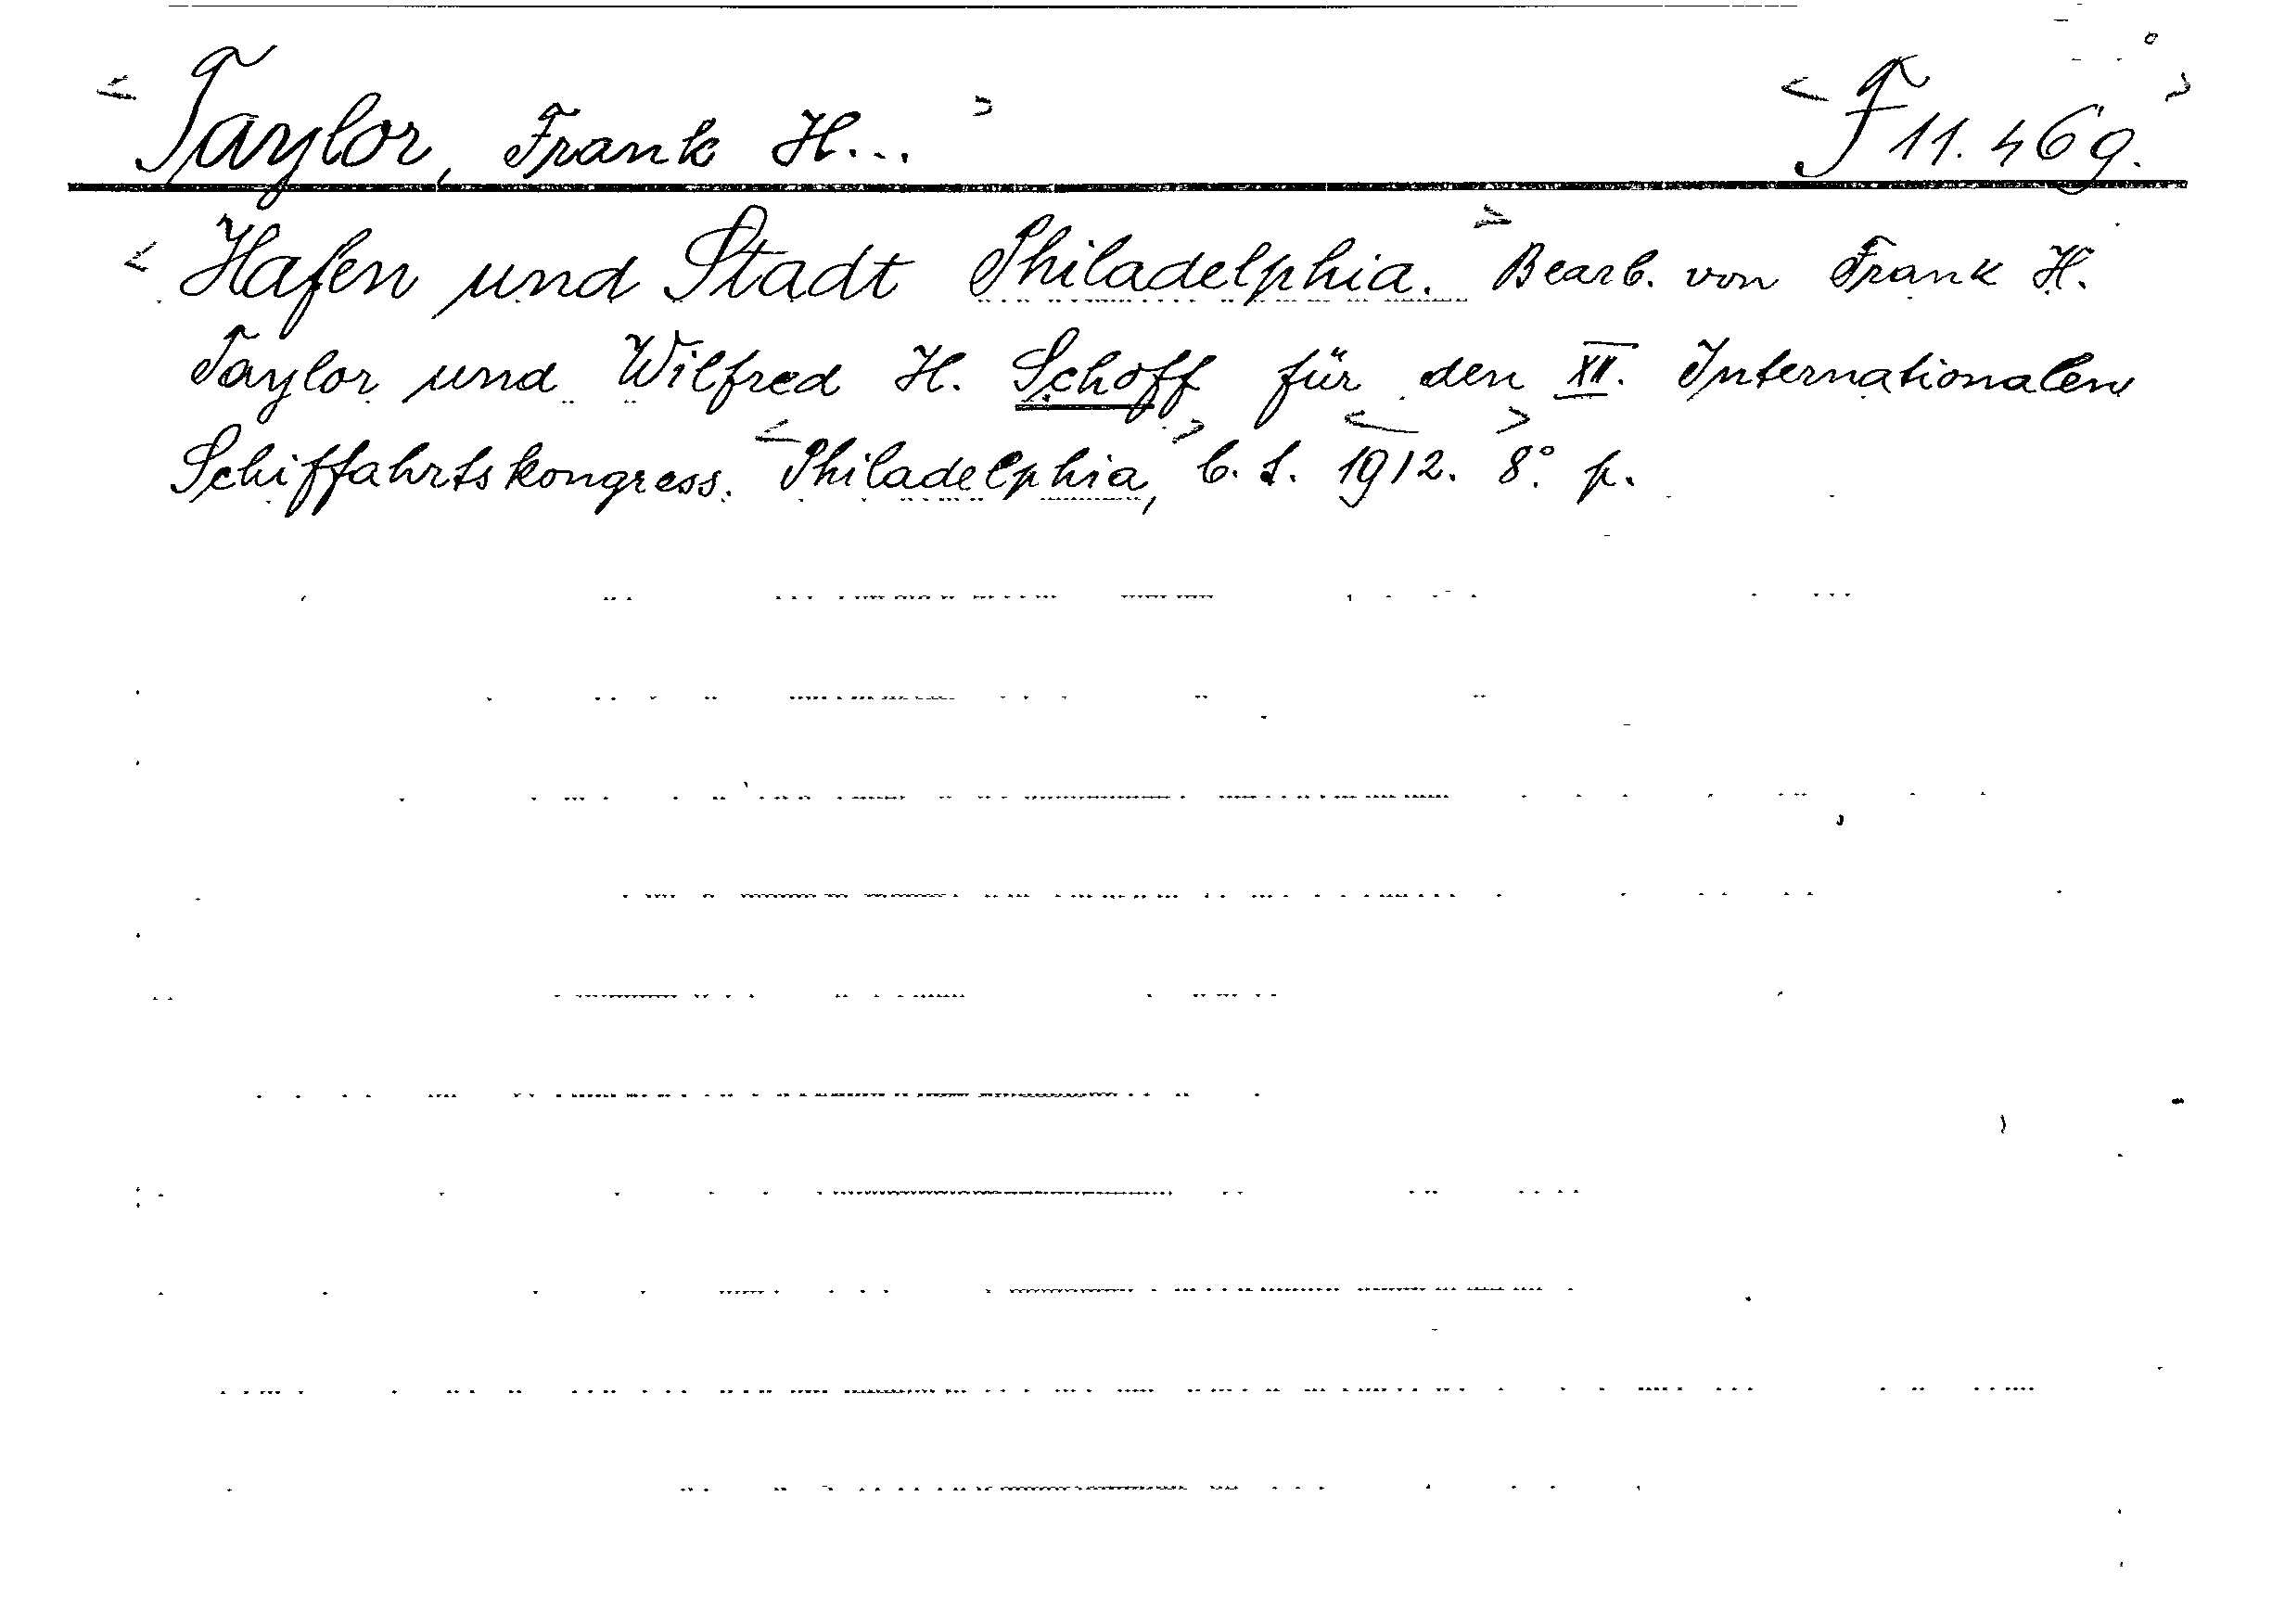 <Taylor, Frank H...> <F 11.469.>
<Hafen und Stadt Philadelphia.> Bearb. von Frank H.
Taylor und Wilfred H. Schoff für den XII. Internationalen
Schiffahrtskongress. <Philadelphia,> <1912.> 8° p.